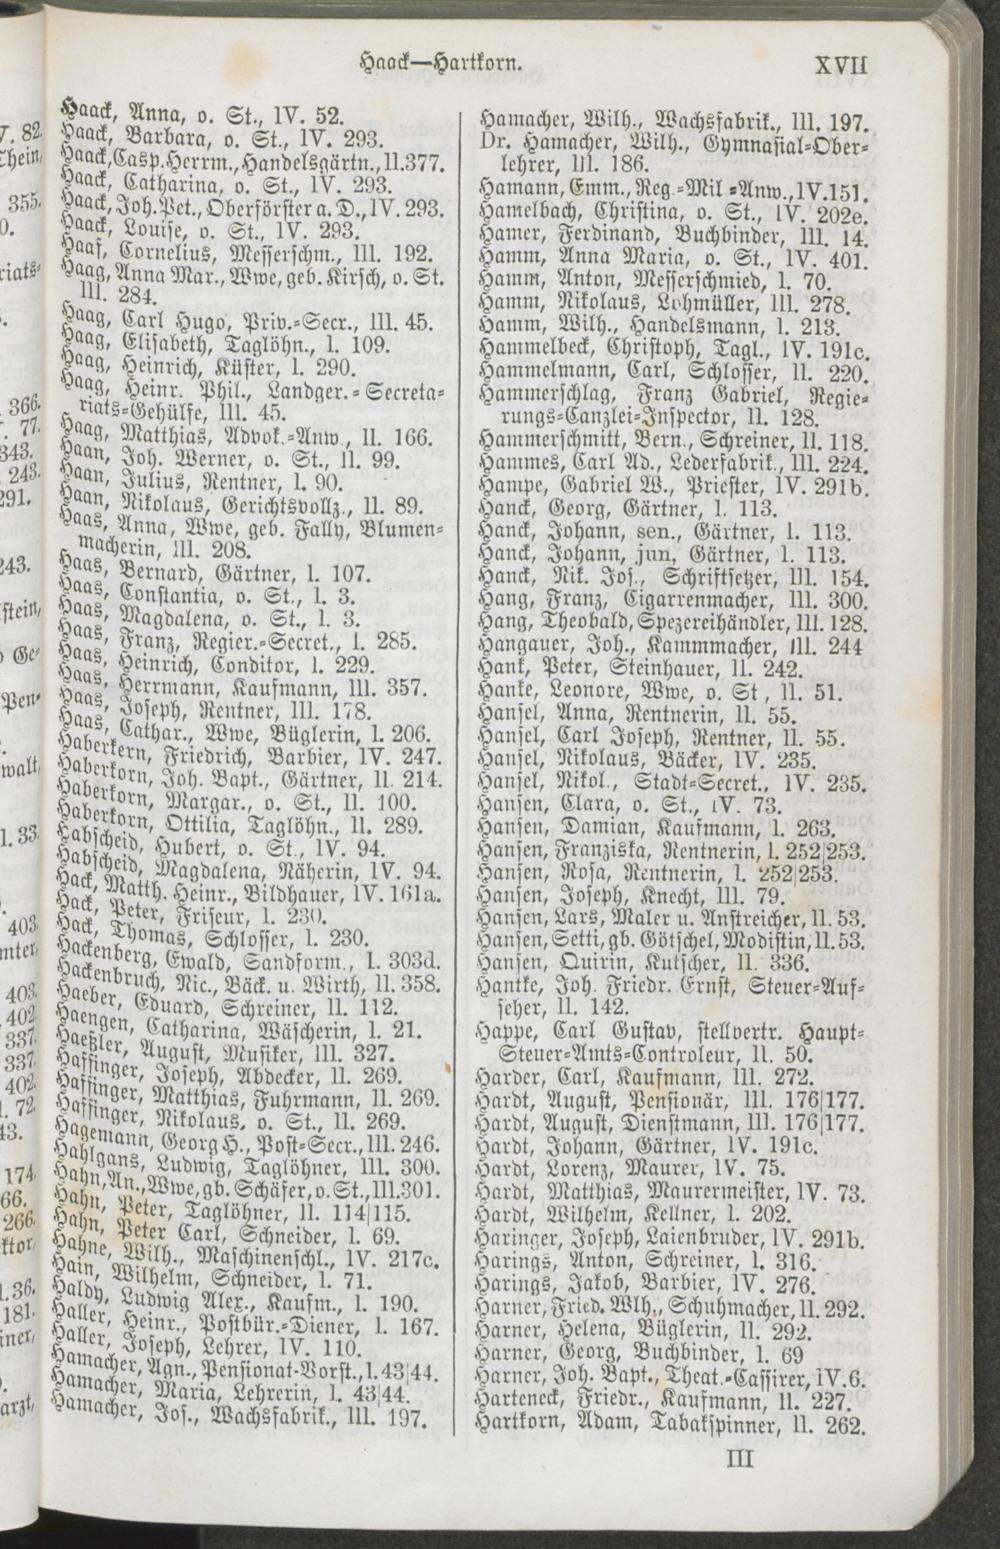 Haack—Hartkorn.
XVII
Haack, Anna, o. St., IV. 52.
Haack, Barbara, o. St., IV. 293.
Haack, Casp. Herrm., Handelsgärtn., II. 377.
Haack, Catharina, o. St., IV. 293.
Haack, Joh. Pet., Oberförster a. D., IV. 293.
Haack, Louise, o. St., IV. 293.
Haaf, Cornelius, Messerschm., III. 192.
Haag, Anna Mar., Wwe, geb. Kirsch, o. St.
III. 284.
Haag, Carl Hugo, Priv.-Secr., III. 45.
Haag, Elisabeth, Taglöhn., I. 109.
Haag, Heinrich, Küster, I. 290.
Haag, Heinr. Phil., Landger.-Secreta-
riats-Gehülfe, III. 45.
Haag, Matthias, Advok.-Anw., II. 166.
Haan, Joh. Werner, o. St., II. 99.
Haan, Julius, Rentner, I. 90.
Haan, Nikolaus, Gerichtsvollz., II. 89.
Haas, Anna, Wwe, geb. Fally, Blumen-
macherin, III. 208.
Haas, Bernard, Gärtner, I. 107.
Haas, Constantia, o. St., I. 3.
Haas, Magdalena, o. St., I. 3.
Haas, Franz, Regier.-Secret., I. 285.
Haas, Heinrich, Conditor, I. 229.
Haas, Herrmann, Kaufmann, III. 357.
Haas, Joseph, Rentner, III. 178.
Haas, Cathar., Wwe, Büglerin, I. 206.
Haberkern, Friedrich, Barbier, IV. 247.
Haberkorn, Joh. Bapt., Gärtner, II. 214.
Haberkorn, Margar., o. St., II. 100.
Haberkorn, Ottilia, Taglöhn., II. 289.
Habscheid, Hubert, o. St., IV. 94.
Habscheid, Magdalena, Näherin, IV. 94.
Hack, Matth. Heinr., Bildhauer, IV. 161a.
Hack, Peter, Friseur, I. 230.
Hack, Thomas, Schlosser, I. 230.
Hackenberg, Ewald, Sandform., I. 303d.
Hackenbruch, Nic., Bäck. u. Wirth, II. 358.
Haeber, Eduard, Schreiner, II. 112.
Haengen, Catharina, Wäscherin, I. 21.
Haeßler, August, Musiker, III. 327.
Haffinger, Joseph, Abdecker, II. 269.
Haffinger, Matthias, Fuhrmann, II. 269.
Haffinger, Nikolaus, o. St., II. 269.
Hagemann, Georg H., Post-Secr., III. 246.
Hahlgans, Ludwig, Taglöhner, III. 300.
Hahn, An., Wwe, gb. Schäfer, o. St., III. 301.
Hahn, Peter, Taglöhner, II. 114|115.
Hahn, Peter Carl, Schneider, I. 69.
Hahne, Wilh., Maschinenschl., IV. 217c.
Hain, Wilhelm, Schneider, I. 71.
Haldy, Ludwig Alex., Kaufm., I. 190.
Haller, Heinr., Postbür.-Diener, I. 167.
Haller, Joseph, Lehrer, IV. 110.
Hamacher, Agn., Pensionat-Vorst., I. 43|44.
Hamacher, Maria, Lehrerin, I. 43|44.
Hamacher, Jos., Wachsfabrik., III. 197.
Hamacher, Wilh., Wachsfabrik., III. 197.
Dr. Hamacher, Wilh., Gymnasial-Ober-
lehrer, III. 186.
Hamann, Emm., Reg.-Mil-Anw., IV. 151.
Hamelbach, Christina, o. St., IV. 202e.
Hamer, Ferdinand, Buchbinder, III. 14.
Hamm, Anna Maria, o. St., IV. 401.
Hamm, Anton, Messerschmied, I. 70.
Hamm, Nikolaus, Lohmüller, III. 278.
Hamm, Wilh., Handelsmann, I. 213.
Hammelbeck, Christoph, Tagl., IV. 191c.
Hammelmann, Carl, Schlosser, II. 220.
Hammerschlag, Franz Gabriel, Regie-
rungs-Canzlei-Inspector, II. 128.
Hammerschmitt, Bern., Schreiner, II. 118.
Hammes, Carl Ad., Lederfabrik., III. 224.
Hampe, Gabriel W., Priester, IV. 291b.
Hanck, Georg, Gärtner, I. 113.
Hanck, Johann, sen., Gärtner, I. 113.
Hanck, Johann, jun, Gärtner, I. 113.
Hanck, Nik. Jos., Schriftsetzer, III. 154.
Hang, Franz, Cigarrenmacher, III. 300.
Hang, Theobald, Spezereihändler, III. 128.
Hangauer, Joh., Kammmacher, III. 244
Hank, Peter, Steinhauer, II. 242.
Hanke, Leonore, Wwe, o. St, II. 51.
Hansel, Anna, Rentnerin, II. 55.
Hansel, Carl Joseph, Rentner, II. 55.
Hansel, Nikolaus, Bäcker, IV. 235.
Hansel, Nikol., Stadt-Secret., IV. 235.
Hansen, Clara, o. St., IV. 73.
Hansen, Damian, Kaufmann, I. 263.
Hansen, Franziska, Rentnerin, I. 252|253.
Hansen, Rosa, Rentnerin, I. 252|253.
Hansen, Joseph, Knecht, III. 79.
Hansen, Lars, Maler u. Anstreicher, II. 53.
Hansen, Setti, gb. Götschel, Modistin, II. 53.
Hansen, Quirin, Kutscher, II. 336.
Hantke, Joh. Friedr. Ernst, Steuer-Auf-
seher, II. 142.
Happe, Carl Gustav, stellvertr. Haupt-
Steuer-Amts-Controleur, II. 50.
Harder, Carl, Kaufmann, III. 272.
Hardt, August, Pensionär, III. 176|177.
Hardt, August, Dienstmann, III. 176|177.
Hardt, Johann, Gärtner, IV. 191c.
Hardt, Lorenz, Maurer, IV. 75.
Hardt, Matthias, Maurermeister, IV. 73.
Hardt, Wilhelm, Kellner, I. 202.
Haringer, Joseph, Laienbruder, IV. 291b.
Harings, Anton, Schreiner, I. 316.
Harings, Jakob, Barbier, IV. 276.
Harner, Fried. Wlh., Schuhmacher, II. 292.
Harner, Helena, Büglerin, II. 292.
Harner, Georg, Buchbinder, I. 69
Harner, Joh. Bapt., Theat.-Cassirer, IV. 6.
Harteneck, Friedr., Kaufmann, II. 227.
Hartkorn, Adam, Tabakspinner, II. 262.
III